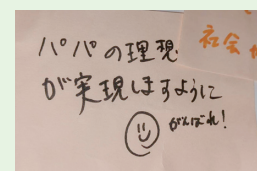 パパの理想
が実現しますように
がんばれ!
社会